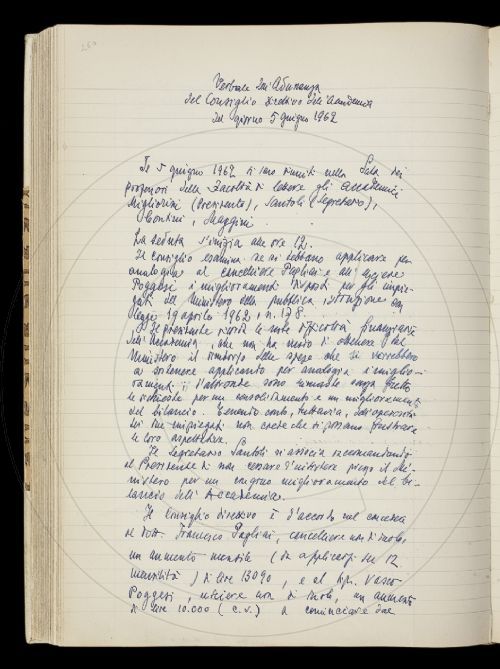 260
Verbale dell'Adunanza
del Consiglio direttivo dell'Accademia
del giorno 5 giugno 1962
Il 5 giugno 1962 si sono riuniti nella Sala dei
professori della Facoltà di lettere gli accademici
Migliorini (Presidente), Santoli (Segretario),
Contini, Maggini.
La seduta s'inizia alle ore 12.
Il Consiglio esamina se si debbano applicare per
analogia al cancelliere Pagliai e all'usciere
Poggesi i miglioramenti disposti per gli impie-
gati del Ministero della pubblica istruzione con
legge 19 aprile 1962, n. 178.
Il Presidente ricorda le note difficoltà finanziarie
dell'Accademia, che non ha modo di ottenere dal
Ministero il rimborso delle spese che si verrebbero
a sostenere applicando per analogia i miglio-
ramenti; d'altronde sono rimaste senza frutto
le richieste per un consolidamento e un miglioramento
del bilancio. Tenendo conto, tuttavia, dell'operosità
dei due impiegati non crede che si possano frustrare
le loro aspettative.
Il Segretario Santoli si associa raccomandando
al Presidente di non cessare d'insistere presso il Mi-
nistero per un congruo miglioramento del bi-
lancio dell'Accademia.
Il Consiglio direttivo è d'accordo nel concedere
al dott. Francesco Pagliai, cancelliere non di ruolo,
un aumento mensile (da applicarsi su 12
mensilità) di lire 13090, e al sig. Vasco
Poggesi, usciere non di ruolo, un aumento
di lire 10.000 (c.s.) a cominciare dal